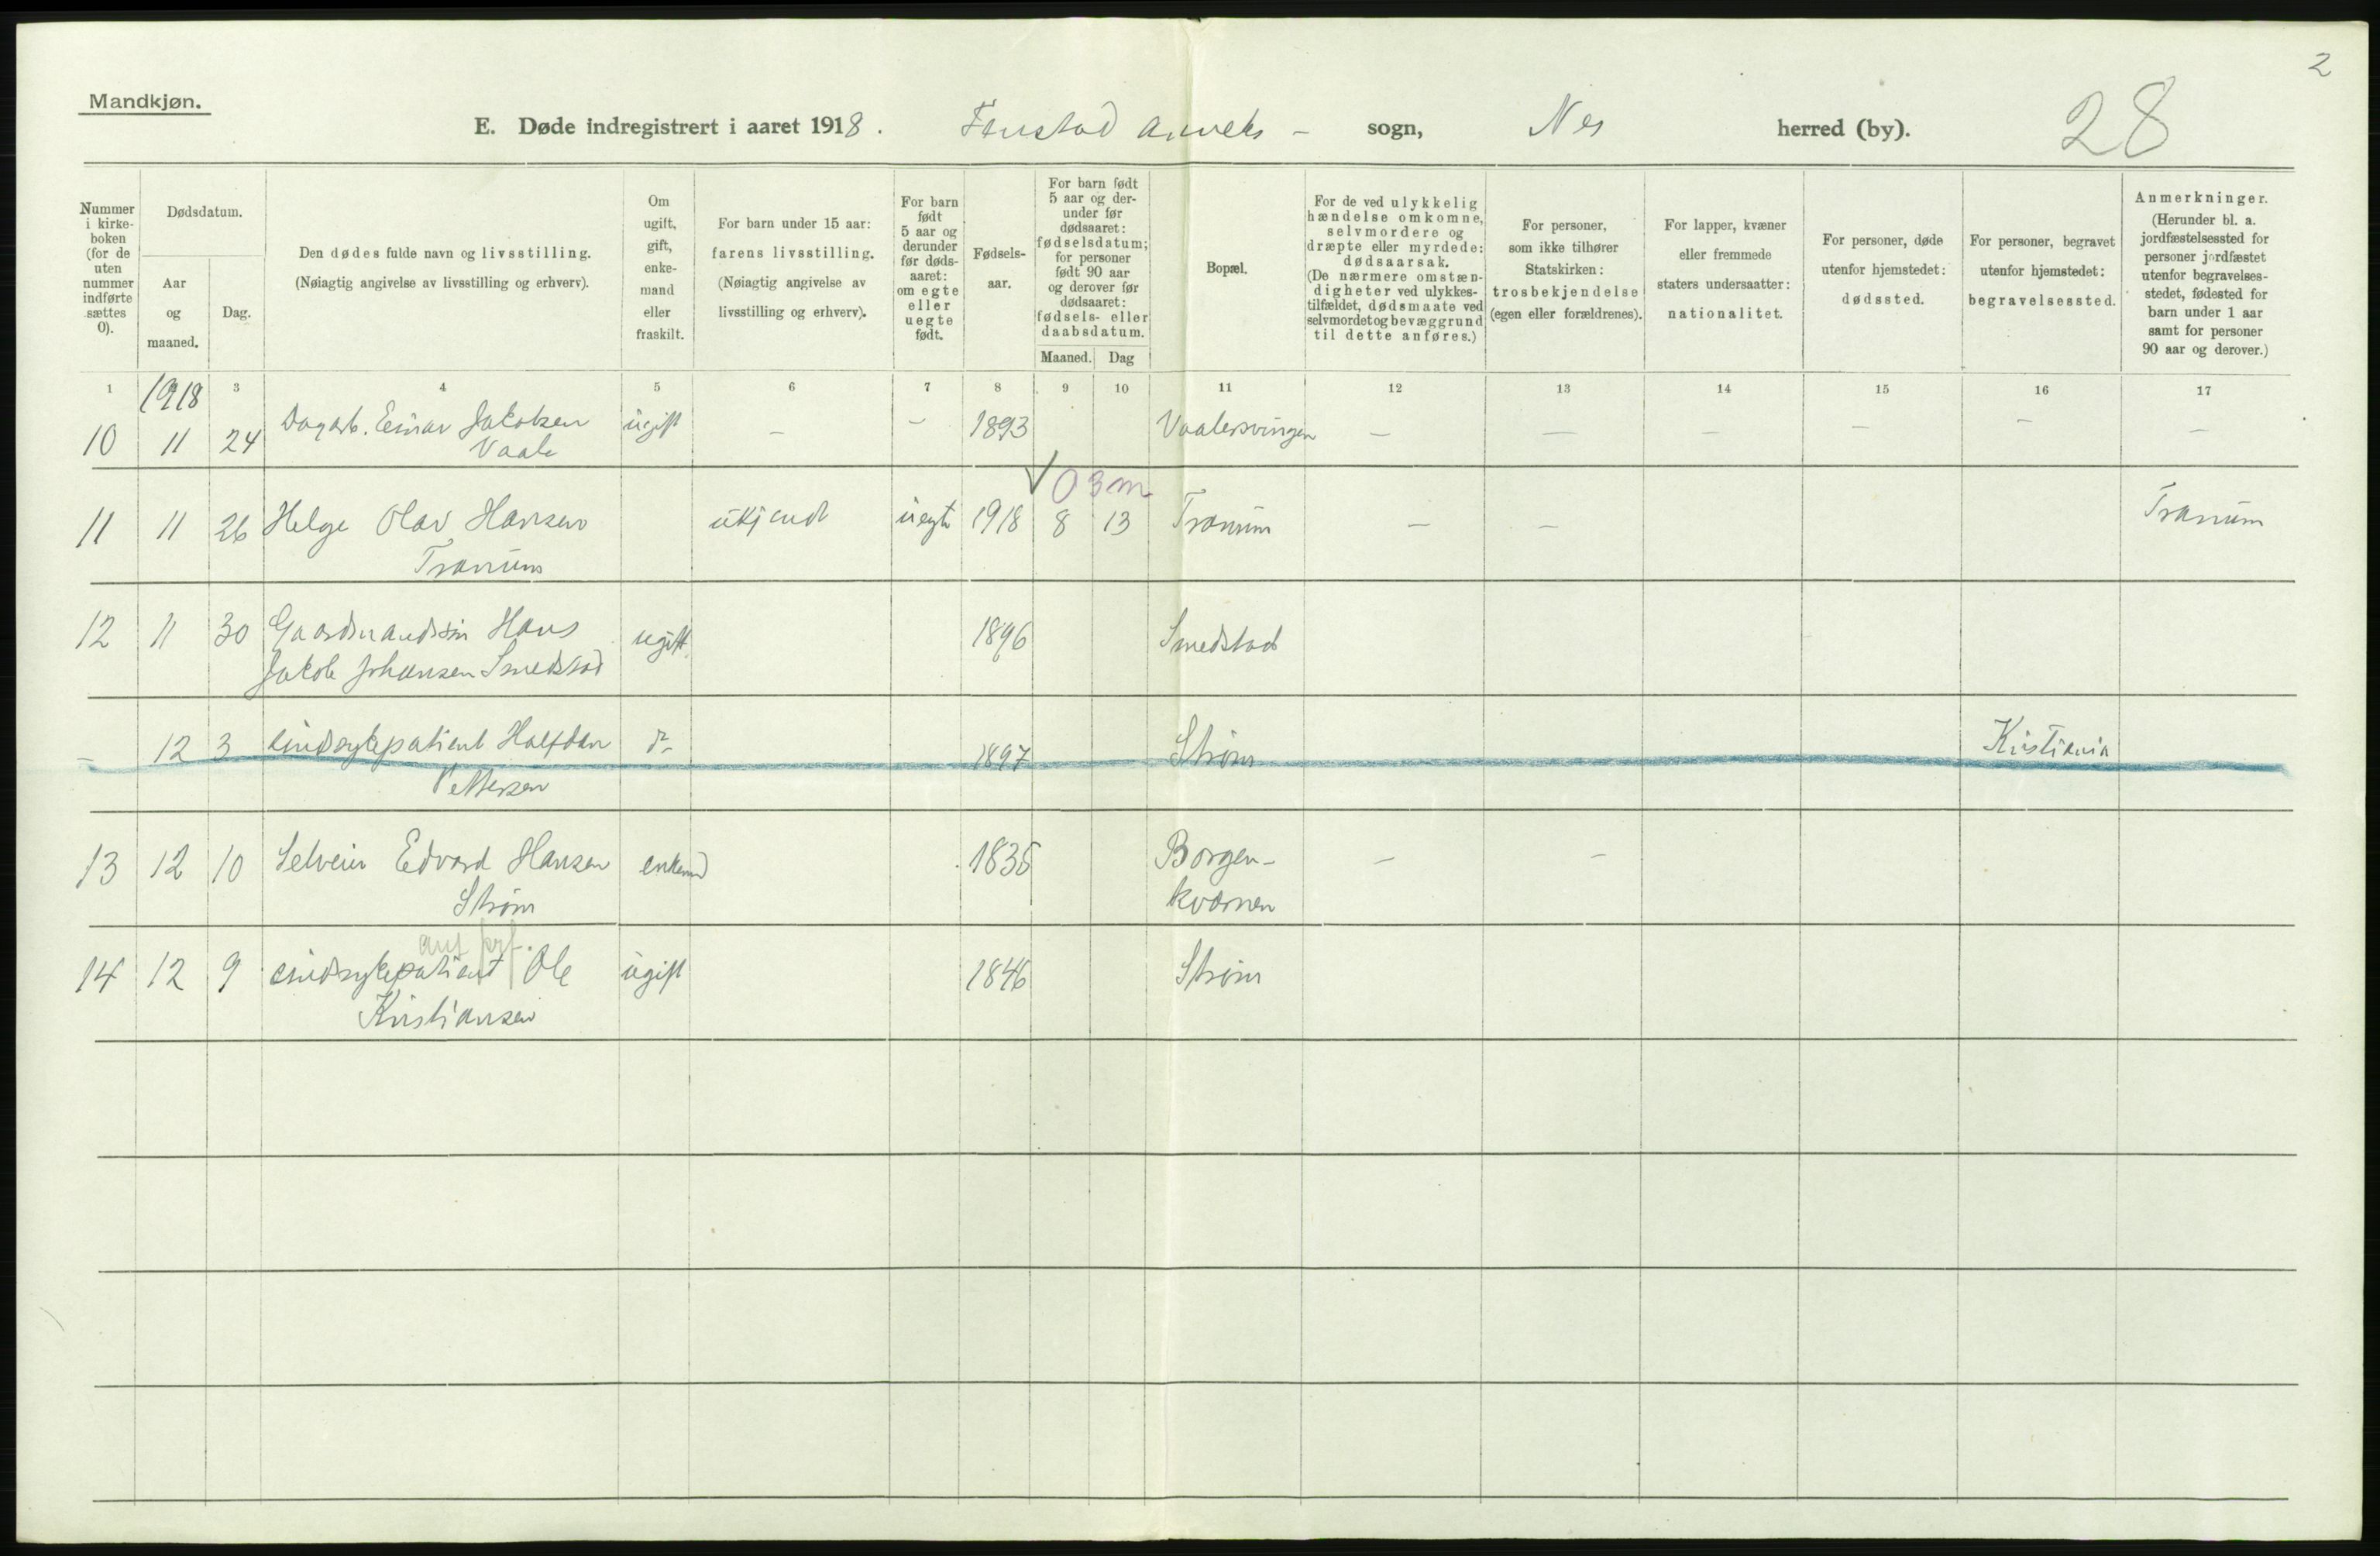 2
Mandkjøn.
E. Døde indregistrert i aaret 1918. Fenstad anneks - sogn, Nes herred (by). 28
Nummer i kirkeboken (for de uten nummer indførte sættes 0).
Dødsdatum.
Aar og maaned.
Dag.
Den dødes fulde navn og livsstilling.
(Nøiagtig angivelse av livsstilling og erhverv).
Om ugift, gift, enkemand eller fraskilt.
For barn under 15 aar:
farens livsstilling.
(Nøiagtig angivelse av
livsstilling og erhverv).
For barn født 5 aar og derunder før dødsaaret: om egte eller uegte født.
Fødselsaar.
For barn født 5 aar og derunder før dødsaaret: fødselsdatum; for personer født 90 aar og derover før dødsaaret: fødsels- eller daabsdatum.
Maaned. Dag
Bopæl.
For de ved ulykkelig hændelse omkomne, selvmordere og dræpte eller myrdede: dødsaarsak.
(De nærmere omstændigheter ved ulykkestilfældet, dødsmaate ved selvmordet og bevæggrund til dette anføres.)
For personer, som ikke tilhører Statskirken: trosbekjendelse (egen eller forældrenes).
For lapper, kvæner eller fremmede staters undersaatter: nationalitet.
For personer, døde utenfor hjemstedet: dødssted.
For personer, begravet utenfor hjemstedet: begravelsessted.
Anmerkninger.
(Herunder bl. a. jordfæstelsessted for personer jordfæstet utenfor begravelsesstedet, fødested for barn under 1 aar samt for personer 90 aar og derover.)
1 1918 3 4 5 6 7 8 9 10 11 12 13 14 15 16 17
10 11 24 Dagarb. Einar Jakobsen ugift — — 1893 Vaalersvingen — — — — — —
Vaale
0 3 m
11 11 26 Helge Olav Hansen ukjendt uegte 1918 8 13 Tranum — — Tranum
Tranum
12 11 30 Gaardmandssøn Hans ugift 1896 Smedstad
Jakob Johansen Smedstad
- 12 3 sindssykepatient Halfdan do 1897 Strøm Kristiania
Pettersen
13 12 10 Selveier Edvard Hansen enkemd 1835 Borgen-
Strøm kværnen — —
14 12 9 sindssykepatient Ole ugift 1846 Strøm
Kristiansen